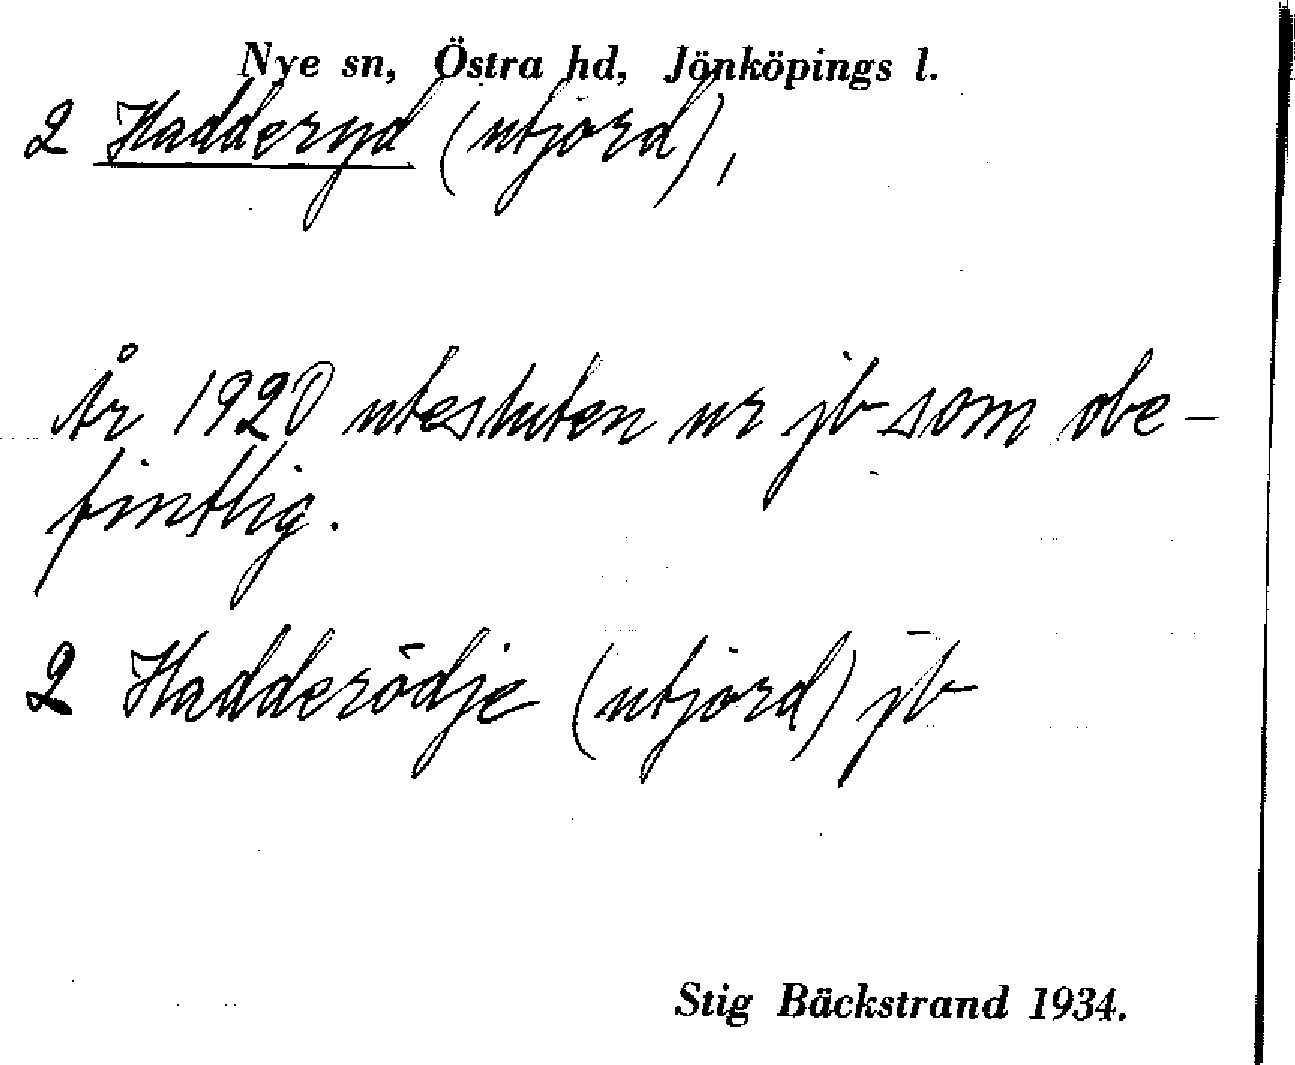 Nye sn, Östra hd, Jönköpings l.
2 Hadderyd (utjord),
År 1920 utesluten ur jb som obe-
fintlig.
2 Hadderödje (utjord) jb
Stig Bäckstrand 1934.